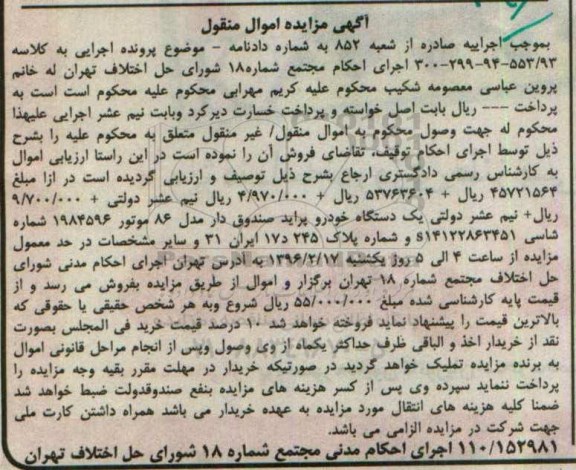 آگهی مزایده اموال منقول
بموجب اجراییه صادره از شعبه ۸۵۲ به شماره دادنامه - موضوع پرونده اجرایی به کلاسه
۳۰۰-۲۹۹-۹۴-۵۵۳/۹۳ اجرای احکام مجتمع شماره۱۸ شورای حل اختلاف تهران له خانم
پروین عباسی معصومه شکیب محکوم علیه کریم مهرابی محکوم علیه محکوم است است به
پرداخت --- ریال بابت اصل خواسته و پرداخت خسارت دیرکرد وبابت نیم عشر اجرایی علیهذا
محکوم له جهت وصول محکوم به اموال منقول/ غیر منقول متعلق به محکوم علیه را بشرح
ذیل توسط اجرای احکام توقیف، تقاضای فروش آن را نموده است در این راستا ارزیابی اموال
به کارشناس رسمی دادگستری ارجاع بشرح ذیل توصیف و ارزیابی گردیده است در ازا مبلغ
۴۵۷۲۱۵۶۴ ریال + ۵۳۷۶۳۶۰۴ ریال + ۴/۹۷۰/۰۰۰ ریال نیم عشر دولتی + ۹/۷۰۰/۰۰۰
ریال+ نیم عشر دولتی یک دستگاه خودرو پراید صندوق دار مدل ۸۶ موتور ۱۹۸۴۵۹۶ شماره
شاسی s۱۴۱۲۲۸۶۳۴۵۱ و شماره پلاک ۲۴۵ د۱۷ ایران ۳۱ و سایر مشخصات در حد معمول
مزایده از ساعت ۴ الی ۵ روز یکشنبه ۱۳۹۶/۲/۱۷ به آدرس تهران اجرای احکام مدنی شورای
حل اختلاف مجتمع شماره ۱۸ تهران برگزار و اموال از طریق مزایده بفروش می رسد و از
قیمت پایه کارشناسی شده مبلغ ۵۵/۰۰۰/۰۰۰ ریال شروع وبه هر شخص حقیقی یا حقوقی که
بالاترین قیمت را پیشنهاد نماید فروخته خواهد شد ۱۰ درصد قیمت خرید فی المجلس بصورت
نقد از خریدار اخذ و الباقی ظرف حداکثر یکماه از وی وصول وپس از انجام مراحل قانونی اموال
به برنده مزایده تملیک خواهد گردید در صورتیکه خریدار در مهلت مقرر بقیه وجه مزایده را
پرداخت ننماید سپرده وی پس از کسر هزینه های مزایده بنفع صندوقدولت ضبط خواهد شد
ضمنا کلیه هزینه های انتقال مورد مزایده به عهده خریدار می باشد همراه داشتن کارت ملی
جهت شرکت در مزایده الزامی می باشد.
۱۱۰/۱۵۲۹۸۱ اجرای احکام مدنی مجتمع شماره ۱۸ شورای حل اختلاف تهران